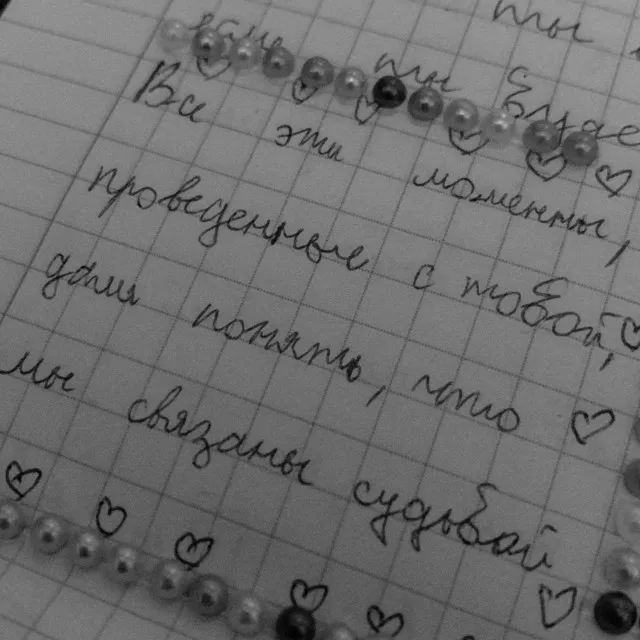 Все эти моменты,
проведенные с тобой,
дали понять, что
мы связаны судьбой